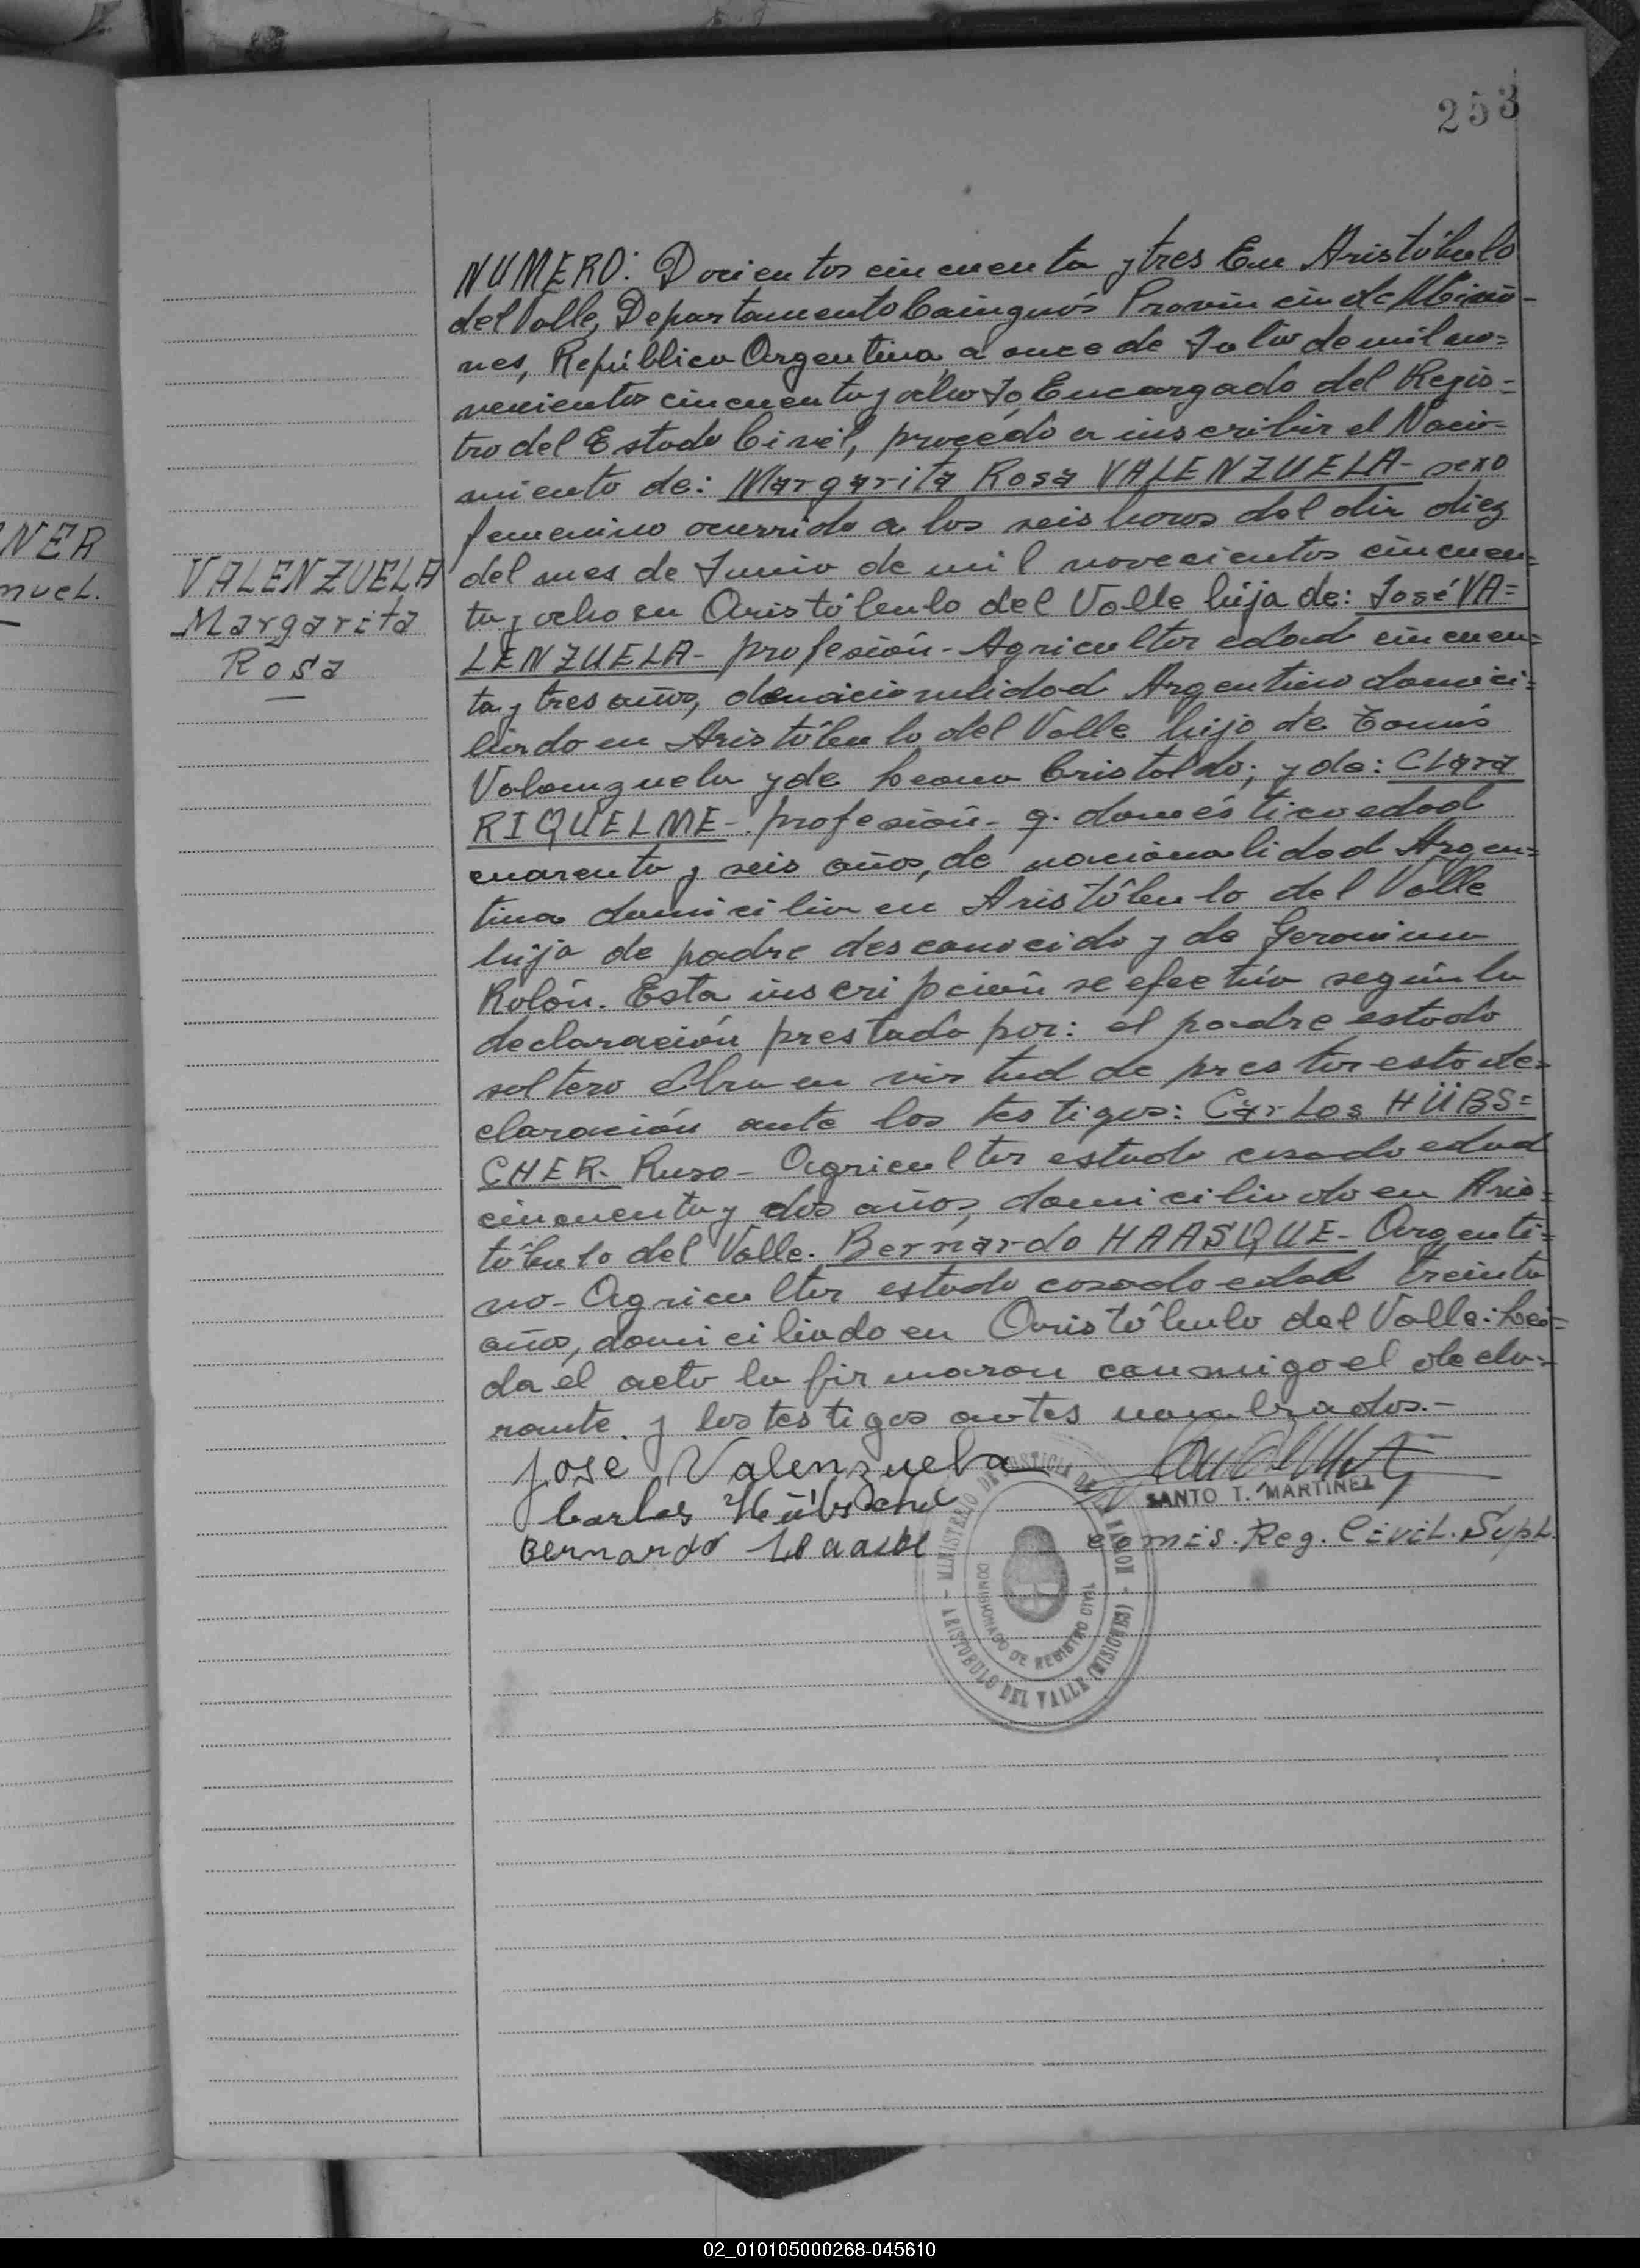 253
NUMERO: Docientos cincuenta y tres En Aristóbulo
del Valle, Departamento Cainguás Provincia de Misio-
nes, República Argentina a once de Julio de mil no=
vecientos cincuenta y ocho Yo Encargado del Regis=
tro del Estado Civil, procedo a inscribir el Naci-
miento de: Margarita Rosa VALENZUELA- sexo
femenino ocurrido a las seis horas del día diez
del mes de Junio de mil novecientos cincuen=
ta y ocho en Aristóbulo del Valle hija de: José VA=
LENZUELA- profesión- Agricultor edad cincuen=
ta y tres años, de nacionalidad Argentino domici=
liado en Aristóbulo del Valle hijo de Tomás
Valenzuela y de Leona Cristaldo; y de: Clara
RIQUELME-. profesión- q. doméstico edad
cuarenta y seis años, de nacionalidad Argen=
tina domicilia en Aristóbulo del Valle
hija de padre desconocido y de Geronima
Rolón. Esta inscripción se efectúa según la
declaración prestada por: el padre estado
soltero Obra en virtud de prestar esta de=
claración ante los testigos: Carlos HÜBS=
CHER- Ruso- Agricultor estado casado edad
cincuenta y dos años, domiciliado en Aris=
tóbulo del Valle. Bernardo HAASQUE- Argenti=
no- Agricultor estado casado edad treinta
años, domiciliado en Aristóbulo del Valle. Leí=
da el acta la firmaron conmigo el decla=
rante y los testigos antes nombrados.-
VALENZUELA
Margarita
Rosa
NER
nuel.
Jose Valenzuela
Carlos
Bernardo
SANTO T. MARTINEZ
Comis. Reg. Civil. Supl.
MINISTERIO DE JUSTICIA DE LA NACION
COMISIONADO DE REGISTRO CIVIL
ARISTOBULO DEL VALLE (MISIONES)
02_010105000268-045610